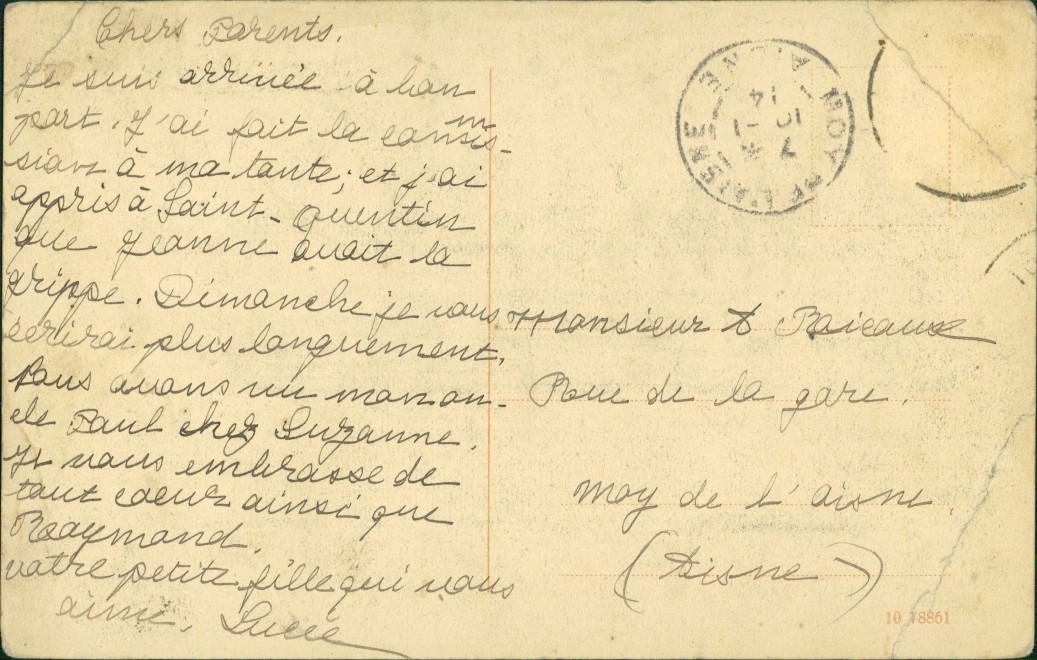 Chers Parents.
Je suis arrivée à bon
port. J'ai fait la commis-
sion à ma tante; et j'ai
appris à Saint-Quentin
que Jeanne avait la
grippe. Dimanche je vous
écrirai plus longuement.
Nous avons vu mon on-
cle Paul chez Suzanne.
Je vous embrasse de
tout coeur ainsi que
Raymond.
votre petite fille qui vous
aime. Lucie
MOY DE L'AISNE
AISNE
Monsieur
Rue de la gare.
Moy de l'aisne.
(Aisne)
10 78861